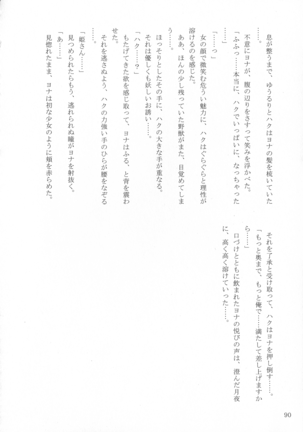 息が整うまで、ゆうるりとハクはヨナの髪を梳いていた。
不意にヨナが、腹の辺りをさすって笑みを浮かべた。
「ふふっ……本当に、ハクでいっぱいに、なっちゃった……」
「――っ」
女の顔で微笑む危うい魅力に、ハクはぐらぐらと理性が溶けるのを感じた。
ああ、ほんの少し残っていた野獣が、また、目覚めてしまう……。
ほっそりとしたその手に、ハクの大きな手が重なる。
それは優しくも妖しいお誘い……。
「ハク……？」
もたげてきた欲を感じ取って、ヨナはふる、と背を震わす。
それを逃さぬよう、ハクの力強い手のひらが腰をなぞる。
「姫さん」
見つめられたらもう、逃れられぬ瞳がヨナを射抜く。
「あ……」
見惚れたまま、ヨナは初な少女のように頬を赤らめた。
それを了承と受け取って、ハクはヨナを押し倒す……。
「もっと奥まで、もっと俺で……満たして差し上げますから……」
口づけとともに飲まれたヨナの悦びの声は、澄んだ月夜に、高く高く溶けていった……。
90